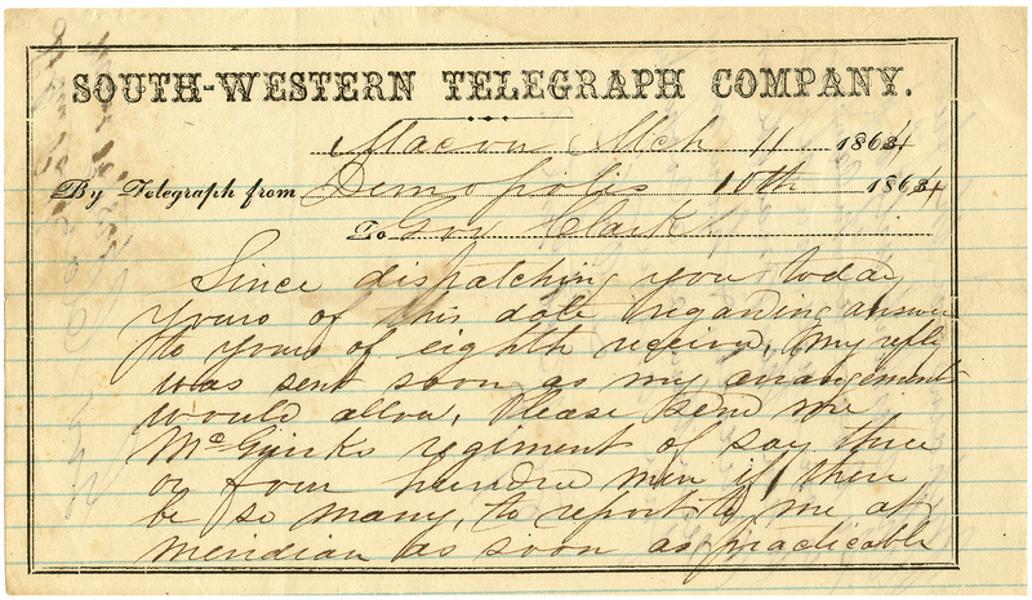 SOUTH-WESTERN TELEGRAPH COMPANY.
Macon Mch 11 1864
By Telegraph from Demopolis 10th 1864
To Gov Clark
Since dispatching you today
yours of this date regarding answer
to yours of eighth received, My reply
was sent soon as my arrangements
would allow, Please send me
regiment of say three
or four hundred men if there
be so many, to report to me at
meridian as soon as practicable